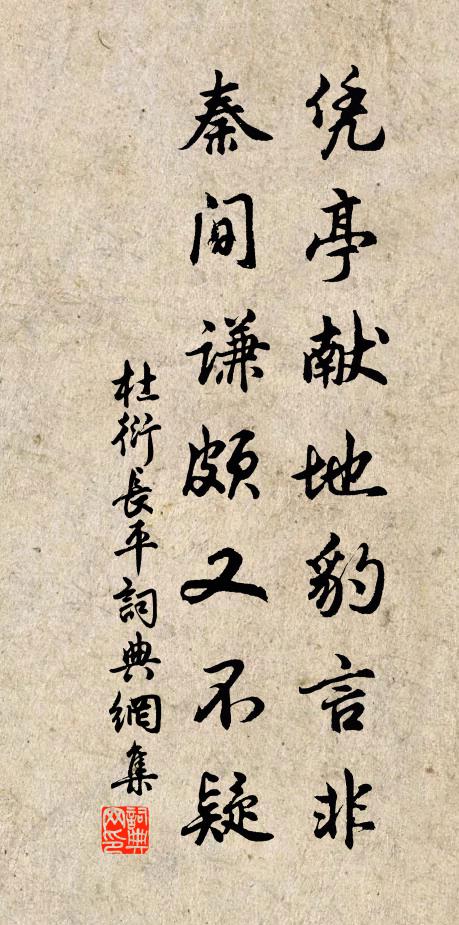 凭亭献地豹言非
秦间谦颇又不疑
杜衍長平詞典網集
詞典
网印